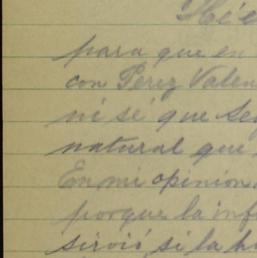 para que en
con Perez Valen
ni sé que Seg
natural que
En mi opinion,
porque la inf
sirvió si la h